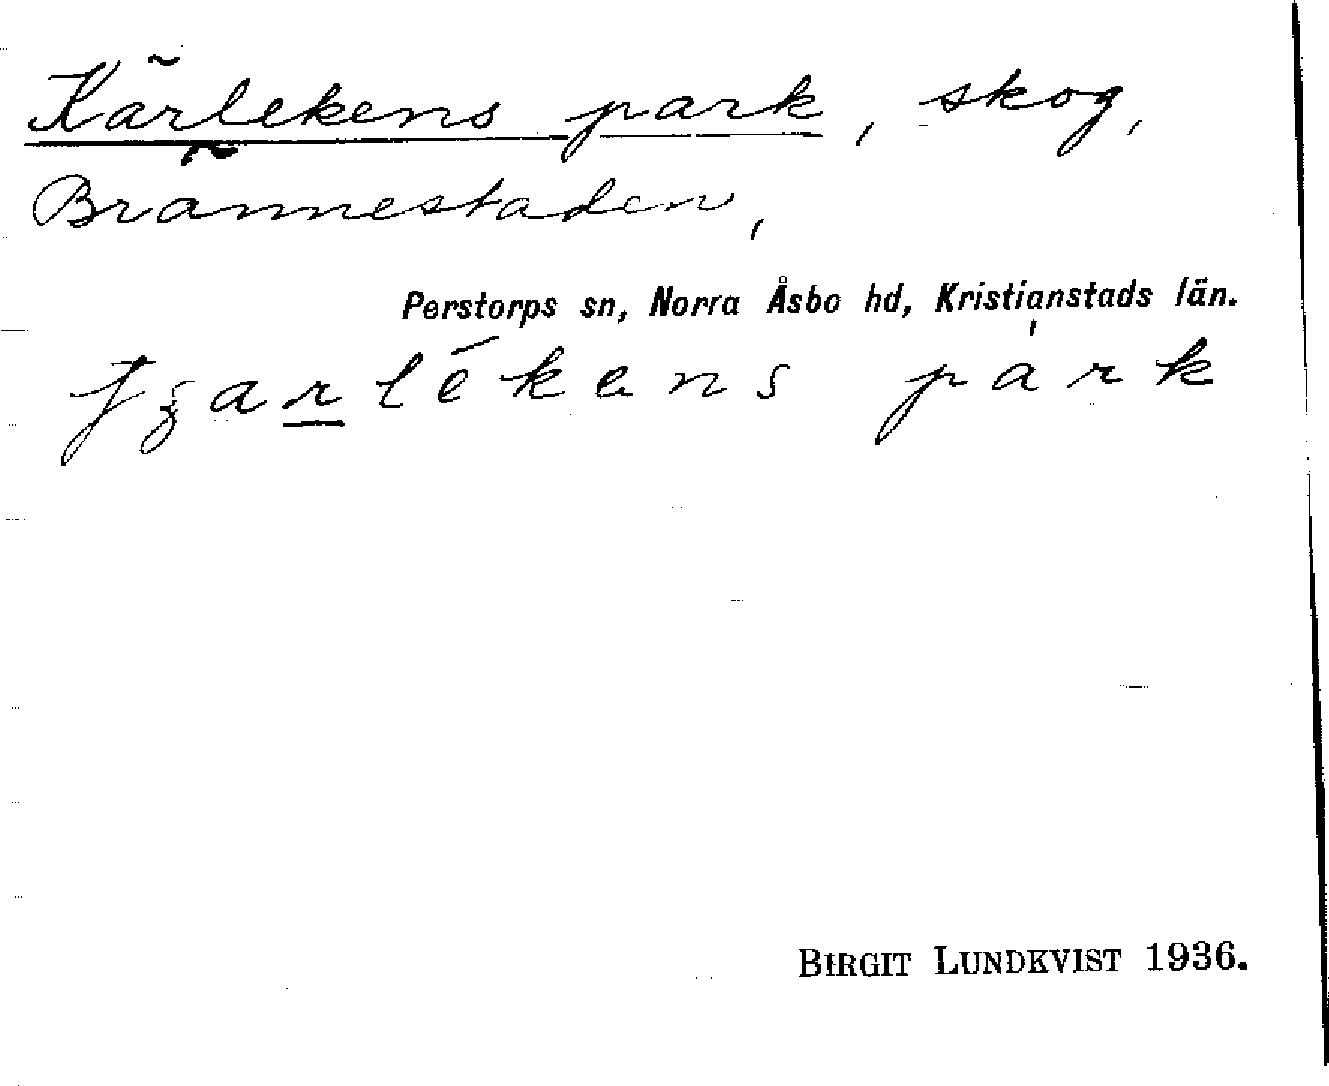 Kärlekens park, skog,
Brännestaden,
Perstorps sn, Norra Åsbo hd, Kristianstads län.
park
BIRGIT LUNDKVIST 1936.